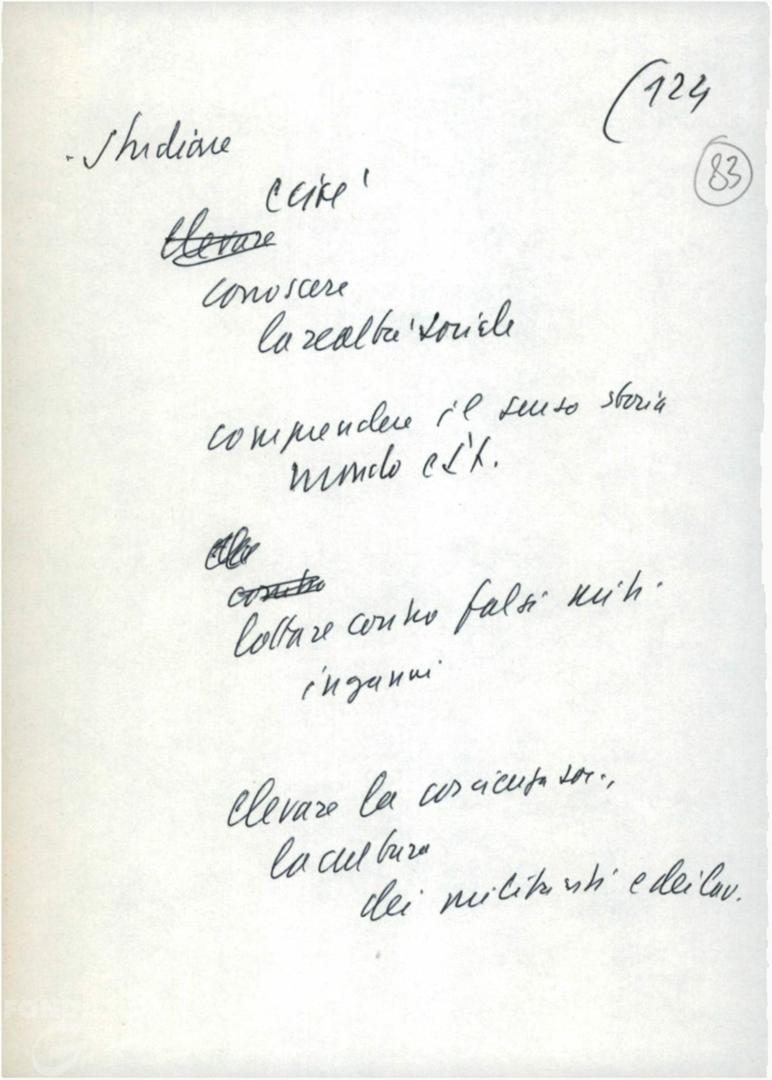 (124
83
- studiare
cioè
elevare
conoscere
la realtà sociale
comprendere il senso storia
mondo
contro
lottare contro falsi miti.
inganni
elevare la coscienza soc.,
la cultura
dei militanti e dei lav.
FOND